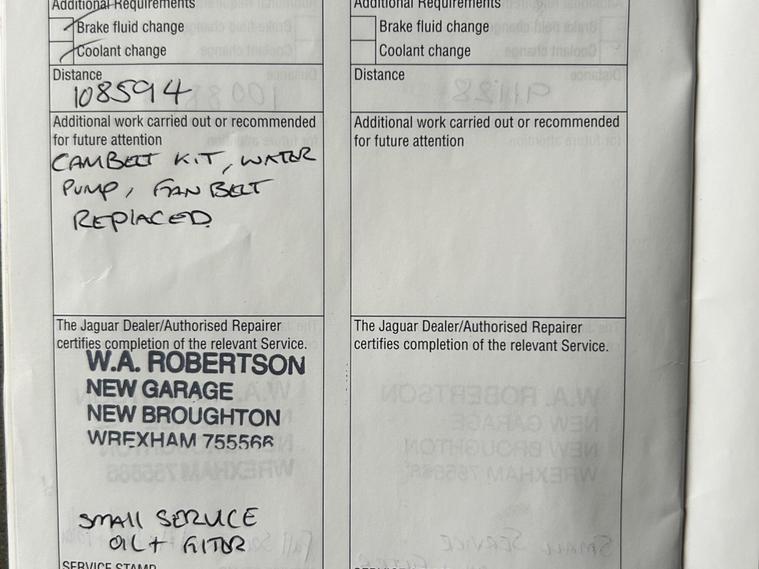 Additional Requirements
Brake fluid change
Coolant change
Distance
108594
Additional work carried out or recommended
for future attention
CAMBELT KIT, WATER
PUMP, FAN BELT
REPLACED
The Jaguar Dealer/Authorised Repairer
certifies completion of the relevant Service.
W.A. ROBERTSON
NEW GARAGE
NEW BROUGHTON
WREXHAM 755566
SMALL SERVICE
OIL + FILTER
SERVICE STAMP
Additional Requirements
Brake fluid change
Coolant change
Distance
Additional work carried out or recommended
for future attention
The Jaguar Dealer/Authorised Repairer
certifies completion of the relevant Service.